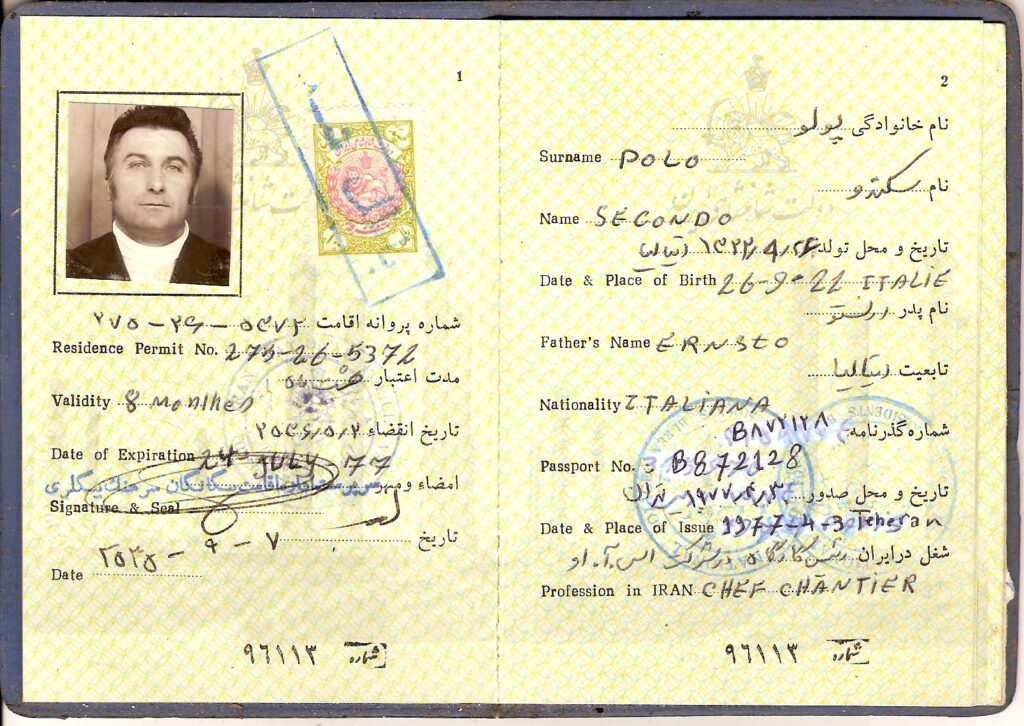 1
شماره پروانه اقامت ۲۷۵-۲۶-۵۳۷۲
Residence Permit No. 275-26-5372
مدت اعتبار
Validity 8 Monthes
تاریخ انقضاء ۲۵۳۶/۵/۲
Date of Expiration 24 JULY 77
امضاء و مهر
Signature & Seal
تاریخ ۲۵۳۵-۹-۷
Date
۹۶۱۱۳ شماره
2
نام خانوادگی پولو
Surname POLO
نام سکندو
Name SECONDO
تاریخ و محل تولد ایتالیا
Date & Place of Birth 26-9-22 ITALIE
نام پدر ارنستو
Father's Name ERNSTO
تابعیت ایتالیا
Nationality ITALIANA
شماره گذرنامه B۸۷۲۱۲۸
Passport No. B872128
تاریخ و محل صدور ۱۹۷۷
Date & Place of Issue 1977-4-3 Teheran
شغل در ایران
Profession in IRAN CHEF CHANTIER
۹۶۱۱۳ شماره